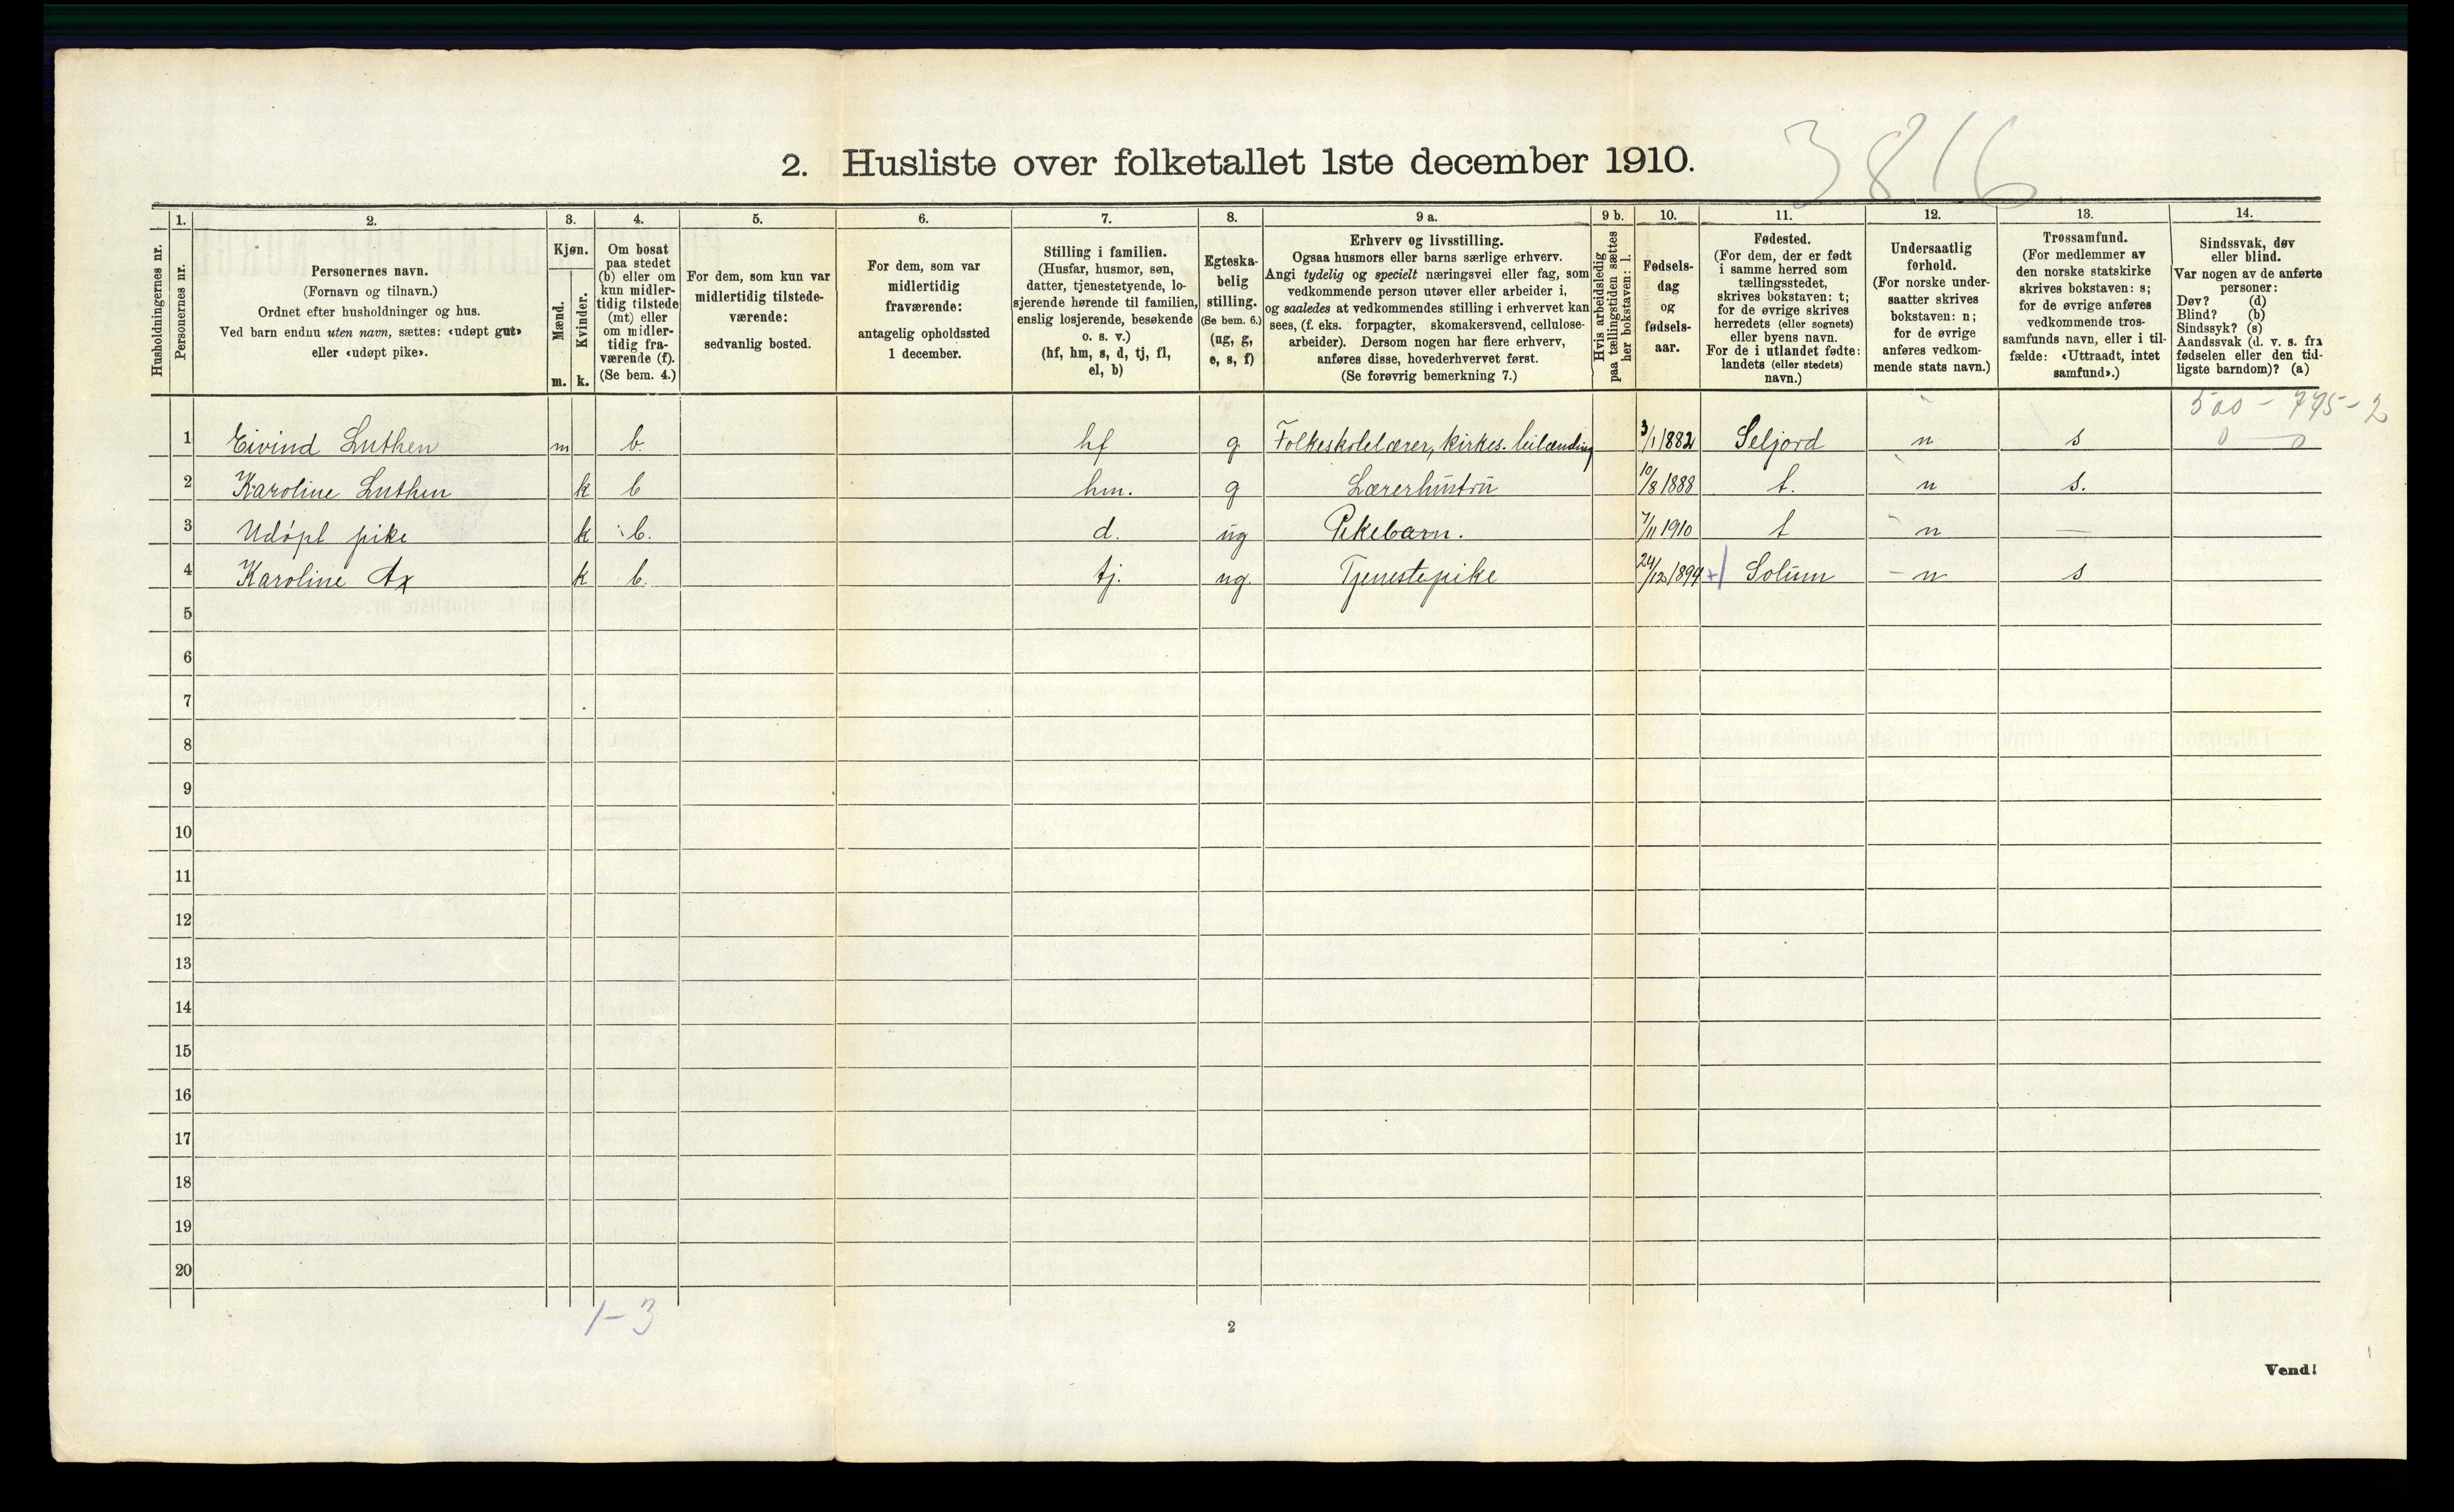 3816
2. Husliste over folketallet 1ste december 1910.
Husholdningernes nr.
1.
Personernes nr.
2.
Personernes navn.
(Fornavn og tilnavn.)
Ordnet efter husholdninger og hus.
Ved barn endnu uten navn, sættes: «udøpt gut»
eller «udøpt pike».
3.
Kjøn.
Mænd.
Kvinder.
m. k.
4.
Om bosat
paa stedet
(b) eller om
kun midler-
tidig tilstede
(mt) eller
om midler-
tidig fra-
værende (f).
(Se bem. 4.)
5.
For dem, som kun var
midlertidig tilstede-
værende:
sedvanlig bosted.
6.
For dem, som var
midlertidig
fraværende:
antagelig opholdssted
1 december.
7.
Stilling i familien.
(Husfar, husmor, søn,
datter, tjenestetyende, lo-
sjerende hørende til familien,
enslig losjerende, besøkende
o. s. v.)
(hf, hm, s, d, tj, fl,
el, b)
8.
Egteska-
belig
stilling.
(Se bem. 6.)
(ug, g,
e, s, f)
9 a.
Erhverv og livsstilling.
Ogsaa husmors eller barns særlige erhverv.
Angi tydelig og specielt næringsvei eller fag, som
vedkommende person utøver eller arbeider i,
og saaledes at vedkommendes stilling i erhvervet kan
sees, (f. eks. forpagter, skomakersvend, cellulose-
arbeider). Dersom nogen har flere erhverv,
anføres disse, hovederhvervet først.
(Se forøvrig bemerkning 7.)
9 b.
Hvis arbeidsledig
paa tællingstiden sættes
her bokstaven: l.
10.
Fødsels-
dag
og
fødsels-
aar.
11.
Fødested.
(For dem, der er født
i samme herred som
tællingsstedet,
skrives bokstaven: t;
for de øvrige skrives
herredets (eller sognets)
eller byens navn.
For de i utlandet fødte:
landets (eller stedets)
navn.)
12.
Undersaatlig
forhold.
(For norske under-
saatter skrives
bokstaven: n;
for de øvrige
anføres vedkom-
mende stats navn.)
13.
Trossamfund.
(For medlemmer av
den norske statskirke
skrives bokstaven: s;
for de øvrige anføres
vedkommende tros-
samfunds navn, eller i til-
fælde: «Uttraadt, intet
samfund».)
14.
Sindssvak, døv
eller blind.
Var nogen av de anførte
personer:
Døv? (d)
Blind? (b)
Sindssyk? (s)
Aandssvak (d. v. s. fra
fødselen eller den tid-
ligste barndom)? (a)
500 - 775 - 2
0 0
1 Eivind Luthen m b. hf g Folkeskolelærer, kirkes. leilænding 3/1 1882 Seljord n s
2 Karoline Luthen k b hm. g Lærerhustru 10/8 1888 t. n s.
3 Udøpt pike k b. d. ug Pikebarn. 7/11 1910 t n —
4 Karoline Ax k b. tj. ug. Tjenestepike 24/12 1894 Solum n s
5
6
7
8
9
10
11
12
13
14
15
16
17
18
19
20
1-3
2
Vend!